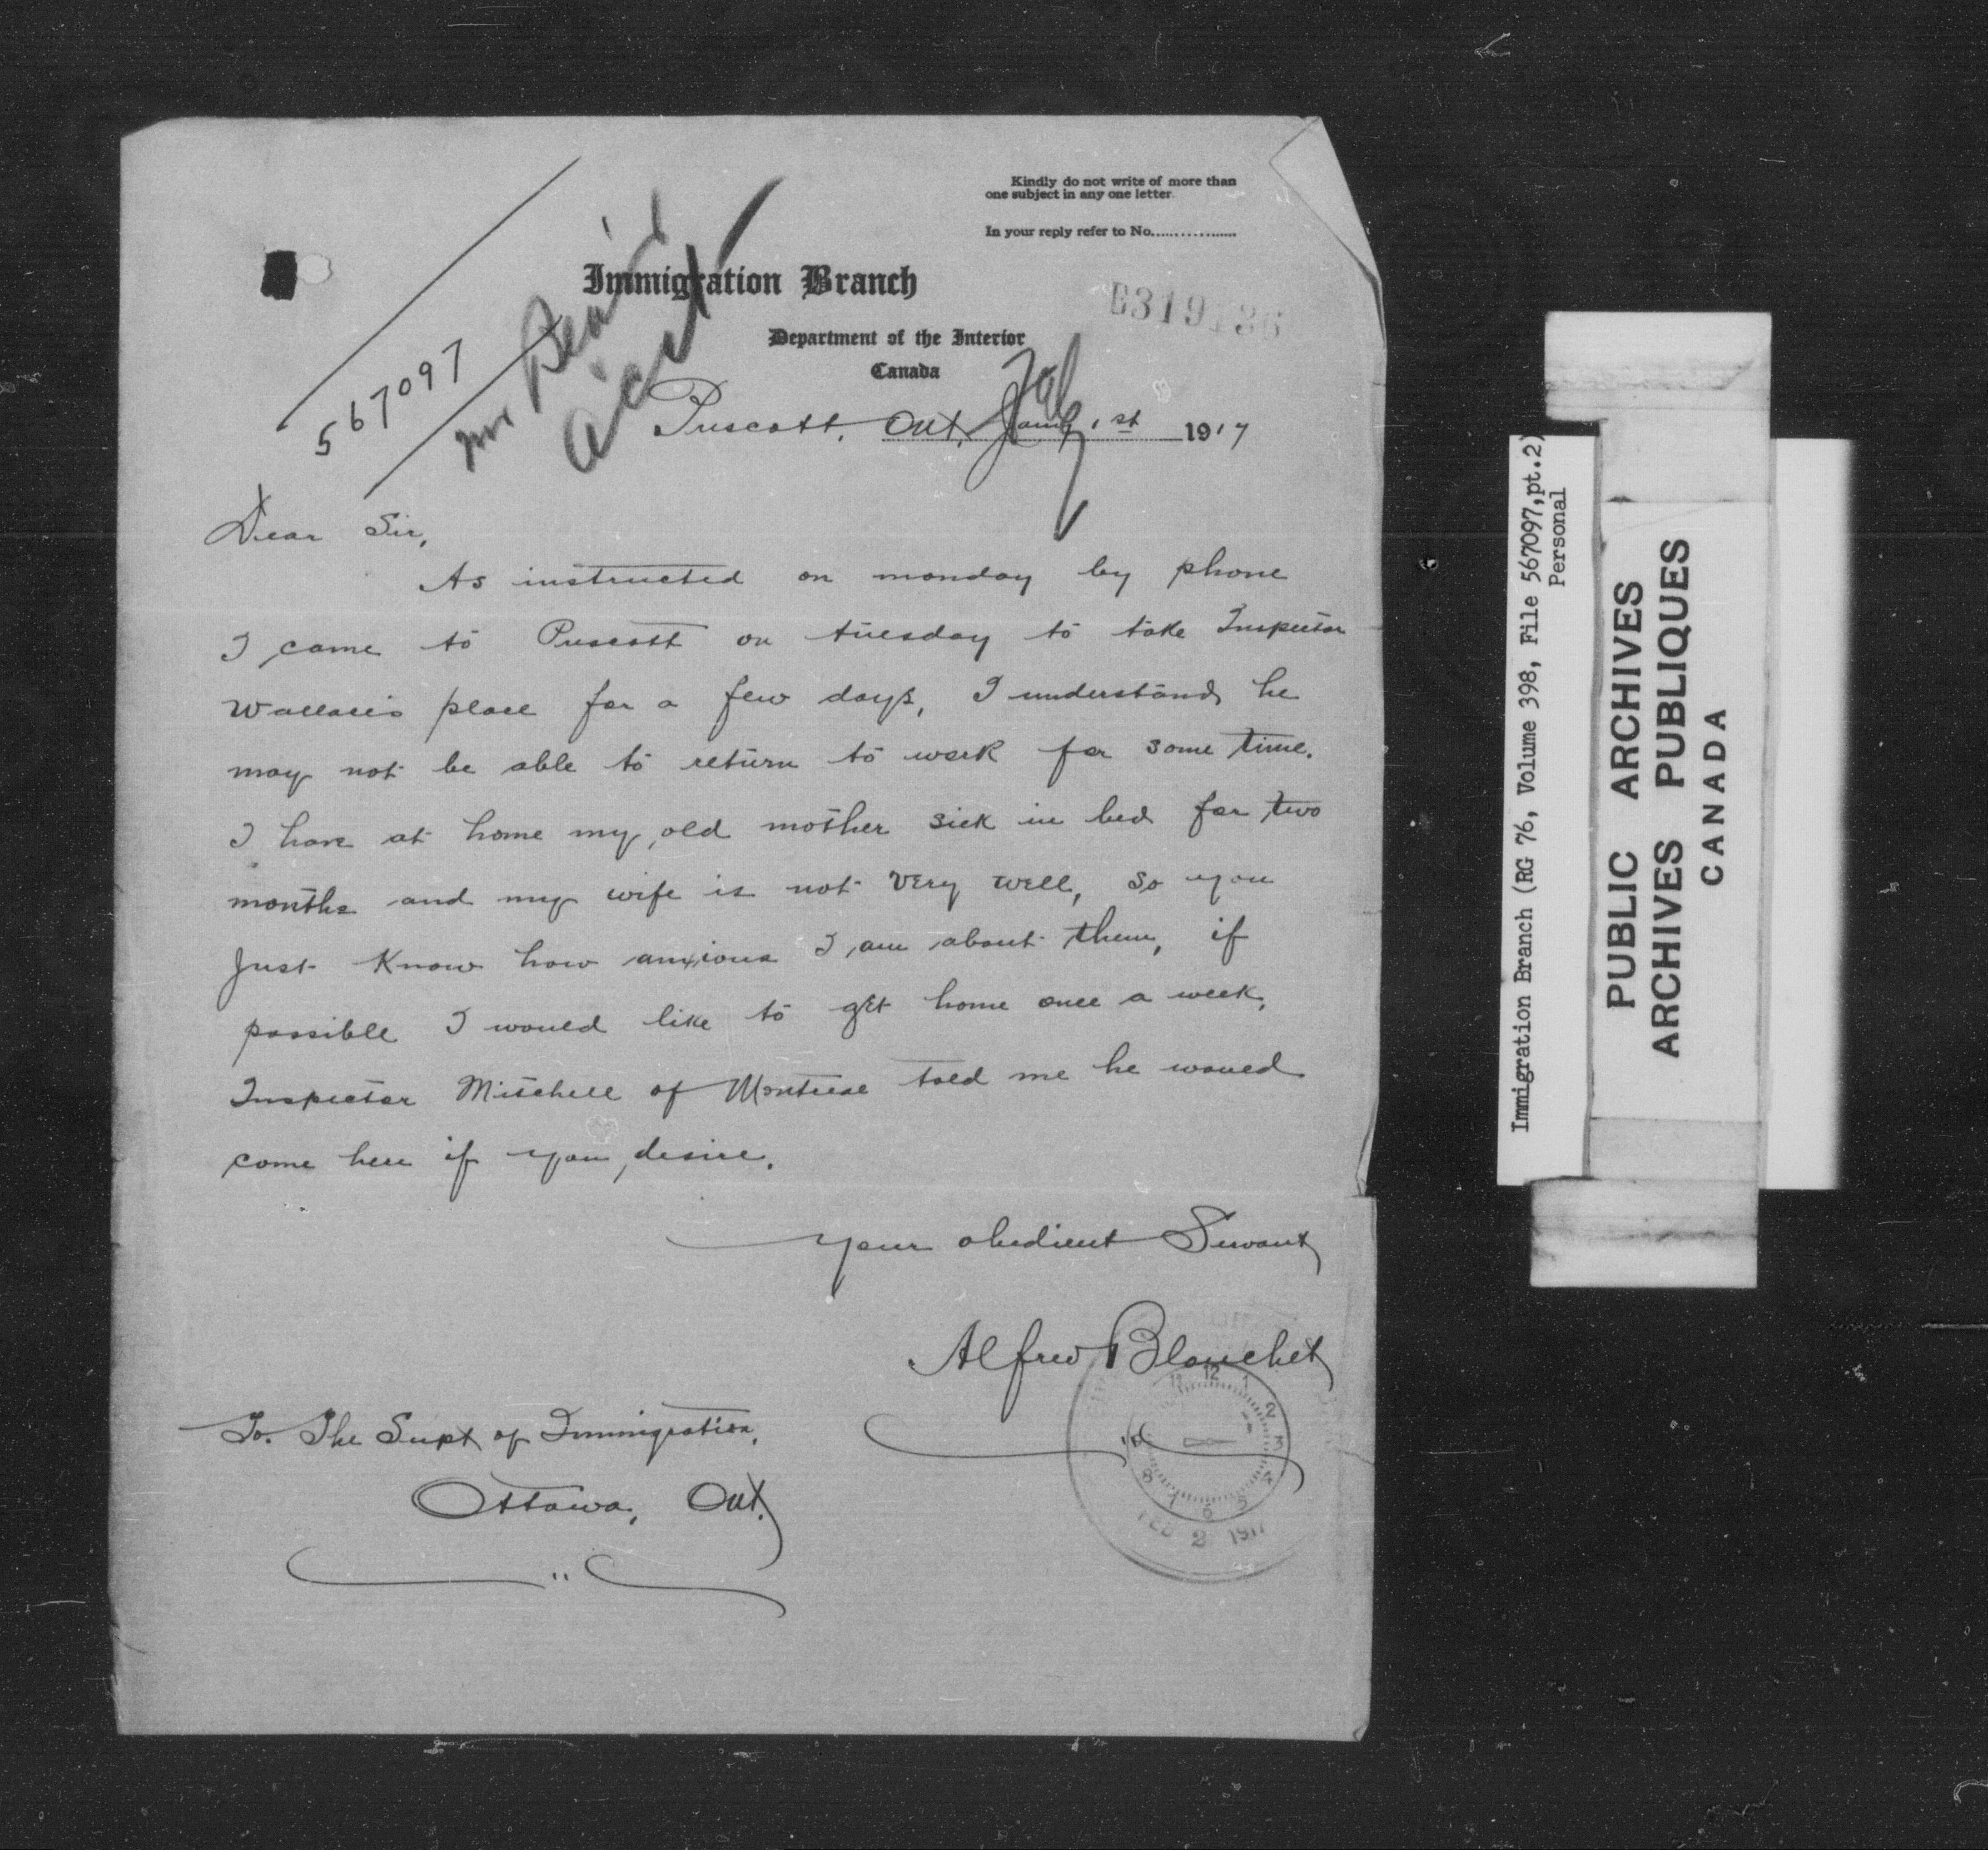 Kindly do not write of more than
one subject in any one letter.
In your reply refer to No.................
Immigration Branch
Department of the Interior
Canada
567097
Mr
Prescott, Ont, Feb 1st 1917
Dear Sir,
As instructed on monday by phone
I came to Prescott on tuesday to take Inspector
Wallace's place for a few days, I understand he
may not be able to return to work for some time.
I have at home my old mother sick in bed for two
months and my wife is not very well, so you
Just Know how anxious I am about them, if
possible I would like to get home once a week,
Inspector Mitchell of Montreal told me he would
come here if you desire.
Your obedient Servant
Alfred Blanchet
To. The Supt of Immigration,
Ottawa, Ont.
11 12 1 2 3 4 5 6 7 8
FEB 2 1917
Immigration Branch (RG 76, Volume 398, File 567097,pt.2)
Personal
PUBLIC ARCHIVES
ARCHIVES PUBLIQUES
CANADA